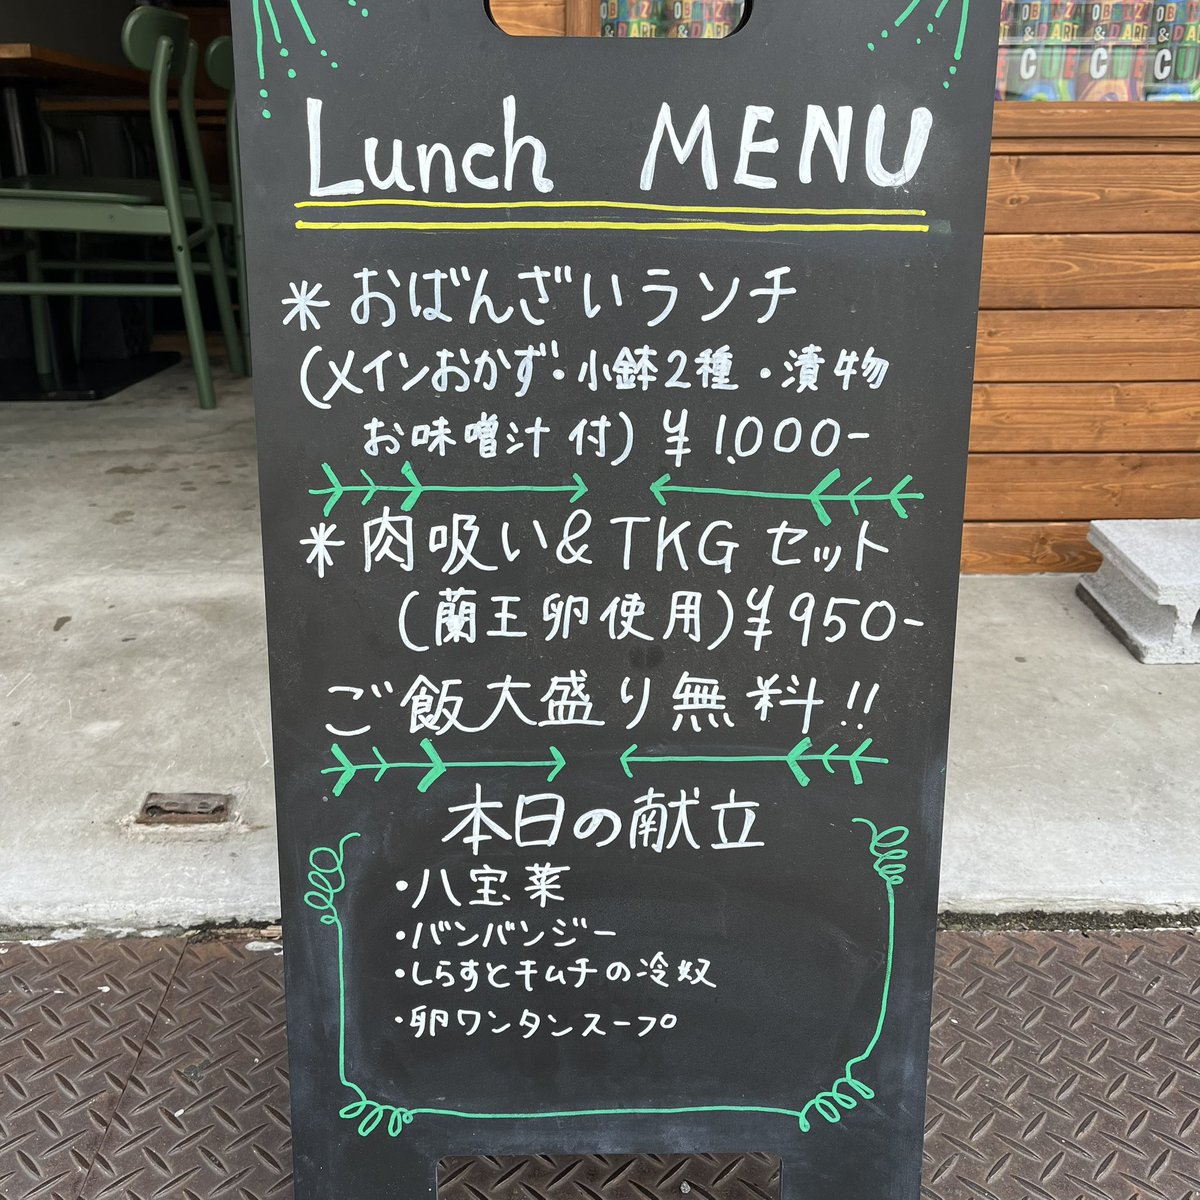 Lunch MENU
*おばんざいランチ
(メインおかず・小鉢2種・漬物
お味噌汁付)¥1.000-
*肉吸い&TKGセット
(蘭王卵使用)¥950-
ご飯大盛り無料!!
本日の献立
・八宝菜
・バンバンジー
・しらすとキムチの冷奴
・卵ワンタンスープ